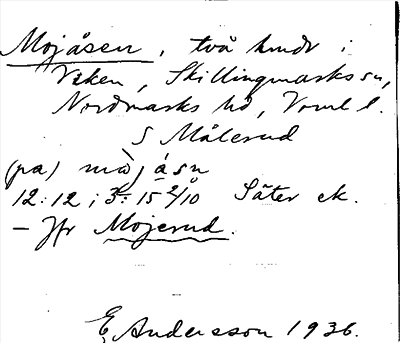 Mojåsen, två hmdr i
Viken, Skillingmarks sn,
Nordmarks hd, Vrml l.
S Målerud
(pa) mòjásn
12:12; 3:15 2/10 Säter ek.
– Jfr Mojerud.
E Andersson 1936.